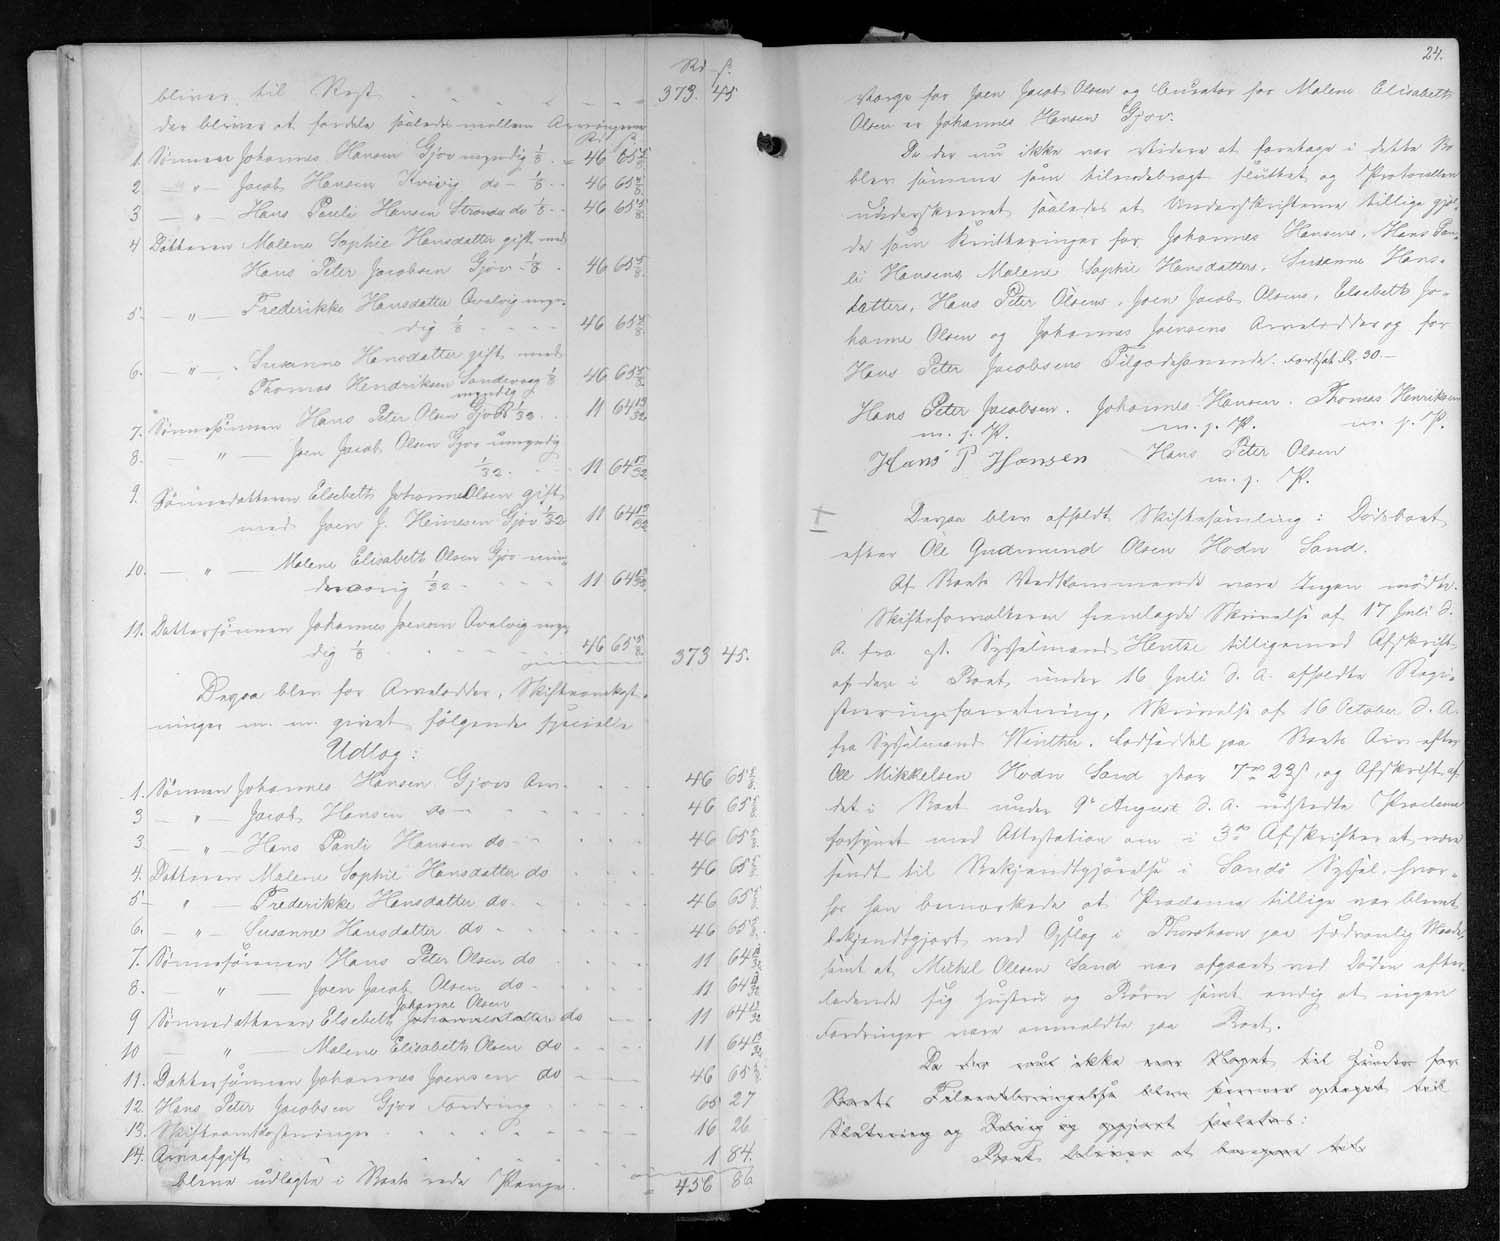 Rd. ß.
bliver til Rest 373. 45
der bliver at fordele saaledes mellem Arvingerne
Rd. ß.
1. Sønnen Johannes Hansen Gjov myndig 1/8 = 46 65 5/8
2. — " — Jacob Hansen Kvivig do — 1/8 46 65 5/8
3 — " — Hans Pauli Hansen Strende do 1/8 46 65 5/8
4 Datteren Malene Sophie Hansdatter gift med
Hans Peter Jacobsen Gjov 1/8 46 65 5/8
5. — " — Frederikke Hansdatter Qvalvig myn-
dig 1/8 46 65 5/8
6. — " — Susanne Hansdatter gift med
Thomas Hendriksen Sandevaag 1/8 46 65 5/8
myndig
7. Sønnesønnen Hans Peter Olsen Gjov 1/32 11 64 13/32
8. — " — Joen Jacob Olsen Gjov umyndig
1/32 11 64 13/32
9. Sønnedatteren Elsebeth Johanne Olsen gift
med Joen J. Heinesen Gjov 1/32 11 64 13/32
10. — " — Malene Elisabeth Olsen Gjov min-
dreaarig 1/32 11 64 13/32
11. Dattersønnen Johannes Joensen Qvalvig myn-
dig 1/8 46 65 5/8 373 45.
Derpaa blev for Arvelodder, Skifteomkost-
ninger m. m. givet følgende specielle
Udlog:
1. Sønnen Johannes Hansen Gjovs Arv 46 65 5/8
3 — " — Jacob Hansen do — 46 65 5/8
3. — " — Hans Pauli Hansen do 46 65 5/8
4. Datteren Malene Sophie Hansdatter do 46 65 5/8
5 — " — Frederikke Hansdatter do 46 65 5/8
6. — " — Susanne Hansdatter do 46 65 5/8
7. Sønnesønnen Hans Peter Olsen do 11 64 13/32
8. — " — Joen Jacob Olsen do 11 64 13/32
Johanne Olsen
9 Sønnedatteren Elsebeth Johannesdatter do 11 64 13/32
10 — " — Malene Elisabeth Olsen do 11 64 13/32
11. Dattersønnen Johannes Joensen do 46 65 5/8
12. Hans Peter Jacobsen Gjov Fordring 65 27
13. Skifteomkostninger 16 26
14. Arveafgift 1 84.
blev udlagte i Boets rede Penge. = 456 86
24.
Værge for Joen Jacob Olsen og Curator for Malene Elisabeth
Olsen er Johannes Hansen Gjov.
Da der nu ikke var videre at foretage i dette Bo
blev samme som tilendebragt sluttet og Protocollen
underskrevet saaledes at Underskrifterne tillige gjæl-
de som Kvitteringer for Johannes Hansens, Hans Pau-
li Hansens Malene Sophie Hansdatters, Susanne Hans-
datters, Hans Peter Olsens, Joen Jacob Olsens, Elsebeth Jo-
hanne Olsen og Johannes Joensens Arvelodder og for
Hans Peter Jacobsens Tilgodehavende. Fortsat S. 30.—
Hans Peter Jacobsen. Johannes Hansen. Thomas Henriksen
m. f. P. m. f. P. m. f. P.
Hans P Hansen Hans Peter Olsen
m. f. P.
Derpaa blev afholdt Skiftesamling i Dødsboet
efter Ole Gudmund Olsen Hodn Sand.
Af Boets Vedkommende vare Ingen mødte.
Skifteforvalteren fremlagde Skrivelse af 17 Juli d.
A. fra cst. Sysselmand Hentze tilligemed Afskrift
af den i Boet under 16 Juli d. A. afholdte Regi-
streringsforretning, Skrivelse af 16 October d. A.
fra Sysselmand Winther, Lodseddel paa Boets Arv efter
Ole Mikkelsen Hodn Sand stor 7 rd 23 ß, og Afskrift af
det i Boet under 9de August d. A. udstedte Proclama
forsynet med Attestation om i 3de Afskrifter at være
sendt til Bekjendtgjørelse i Sandø Syssel, hvor-
hos han bemærkede at Proclama tillige var blevet
bekjendtgjort ved Opslag i Thorshavn paa sædvanlig Maade,
samt at Mickel Olesen Sand var afgaaet ved Døden efter-
ladende sig Hustru og Børn samt endig at ingen
Fordringer vare anmeldte paa Boet.
Da der nu ikke var Noget til Hinder for
Boets Tilendebringelse blev samme optaget til
Slutning og og gjort saaledes:
Boet bliver at beregne til